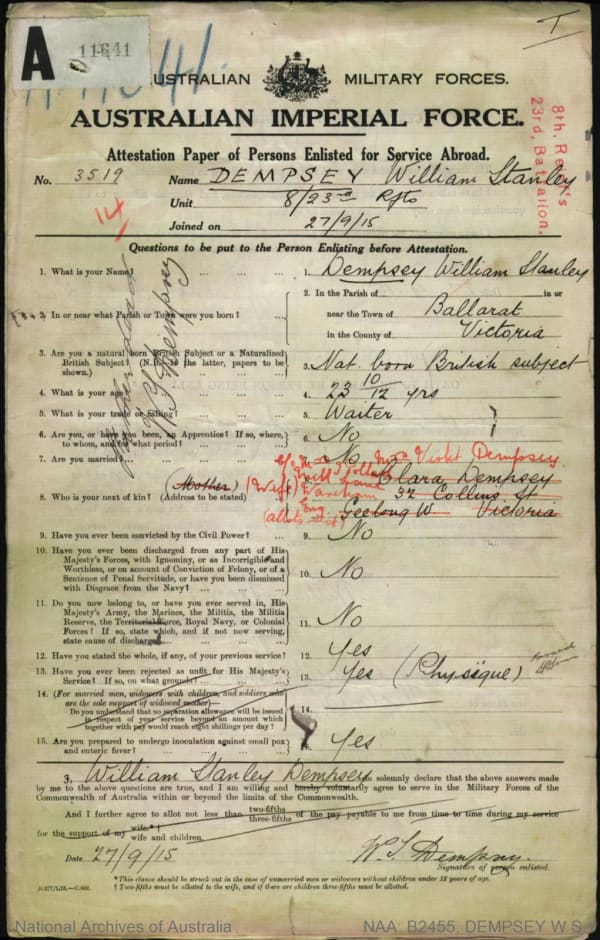 A
11641
T
AUSTRALIAN MILITARY FORCES.
AUSTRALIAN IMPERIAL FORCE.
8th, Reinf's
23rd, Battalion.
Attestation Paper of Persons Enlisted for Service Abroad.
No. 3519 Name DEMPSEY William Stanley
Unit 8/23rd Rfts
14
Joined on 27/9/15
Questions to be put to the Person Enlisting before Attestation.
1. What is your Name? ... ... ... 1. Dempsey William Stanley
2. In or near what Parish or Town were you born? ... 2. In the Parish of in or
near the Town of Ballarat
in the County of Victoria
W S Dempsey
3. Are you a natural born British Subject or a Naturalized British Subject? (N.B. If the latter, papers to be shown.) 3. Nat. born British subject
4. What is your age? ... 4. 23 10/12 yrs
5. What is your trade or calling? ... 5. Waiter
6. Are you, or have you been, an Apprentice? If so, where, to whom, and for what period? ... 6. No
7. Are you married? ... 7. No
Mrs Violet Dempsey
8. Who is your next of kin? (Address to be stated) (Mother) (Wife) Clara Dempsey
Wareham 32 Collins St
Eng Geelong W. Victoria
9. Have you ever been convicted by the Civil Power? ... 9. No
10. Have you ever been discharged from any part of His Majesty's Forces, with Ignominy, or as Incorrigible and Worthless, or on account of Conviction of Felony, or of a Sentence of Penal Servitude, or have you been dismissed with Disgrace from the Navy? ... 10. No
11. Do you now belong to, or have you ever served in, His Majesty's Army, the Marines, the Militia, the Militia Reserve, the Territorial Force, Royal Navy, or Colonial Forces? If so, state which, and if not now serving, state cause of discharge 11. No
12. Have you stated the whole, if any, of your previous service? 12. Yes
13. Have you ever been rejected as unfit for His Majesty's Service? If so, on what grounds? ... 13. Yes (Physique)
14. (For married men, widowers with children, and soldiers who are the sole support of widowed mother)—
Do you understand that no separation allowance will be issued in respect of your service beyond an amount which together with pay would reach eight shillings per day? 14.
15. Are you prepared to undergo inoculation against small pox and enteric fever? ... 15. Yes
I, William Stanley Dempsey do solemnly declare that the above answers made
by me to the above questions are true, and I am willing and hereby voluntarily agree to serve in the Military Forces of the
Commonwealth of Australia within or beyond the limits of the Commonwealth.
And I further agree to allot not less than two-fifths three-fifths of the pay payable to me from time to time during my service
for the support of my wife* † wife and children.
Date 27/9/15 W. S. Dempsey.
Signature of person enlisted.
* This clause should be struck out in the case of unmarried men or widowers without children under 18 years of age.
† Two-fifths must be allotted to the wife, and if there are children three-fifths must be allotted.
National Archives of Australia NAA: B2455, DEMPSEY W S